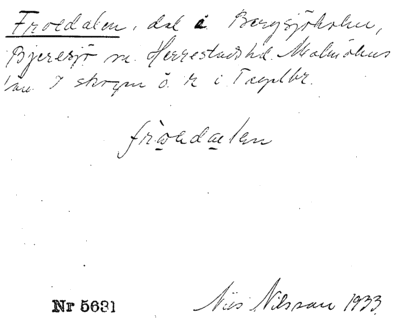 Froedalen, dal i Bergsjöholm,
Bjeresjö sn. Herrestads hd. Malmöhus
län. I skogen ö. k i
froedaelen
Nr 5631
Nils Nilsson 1933